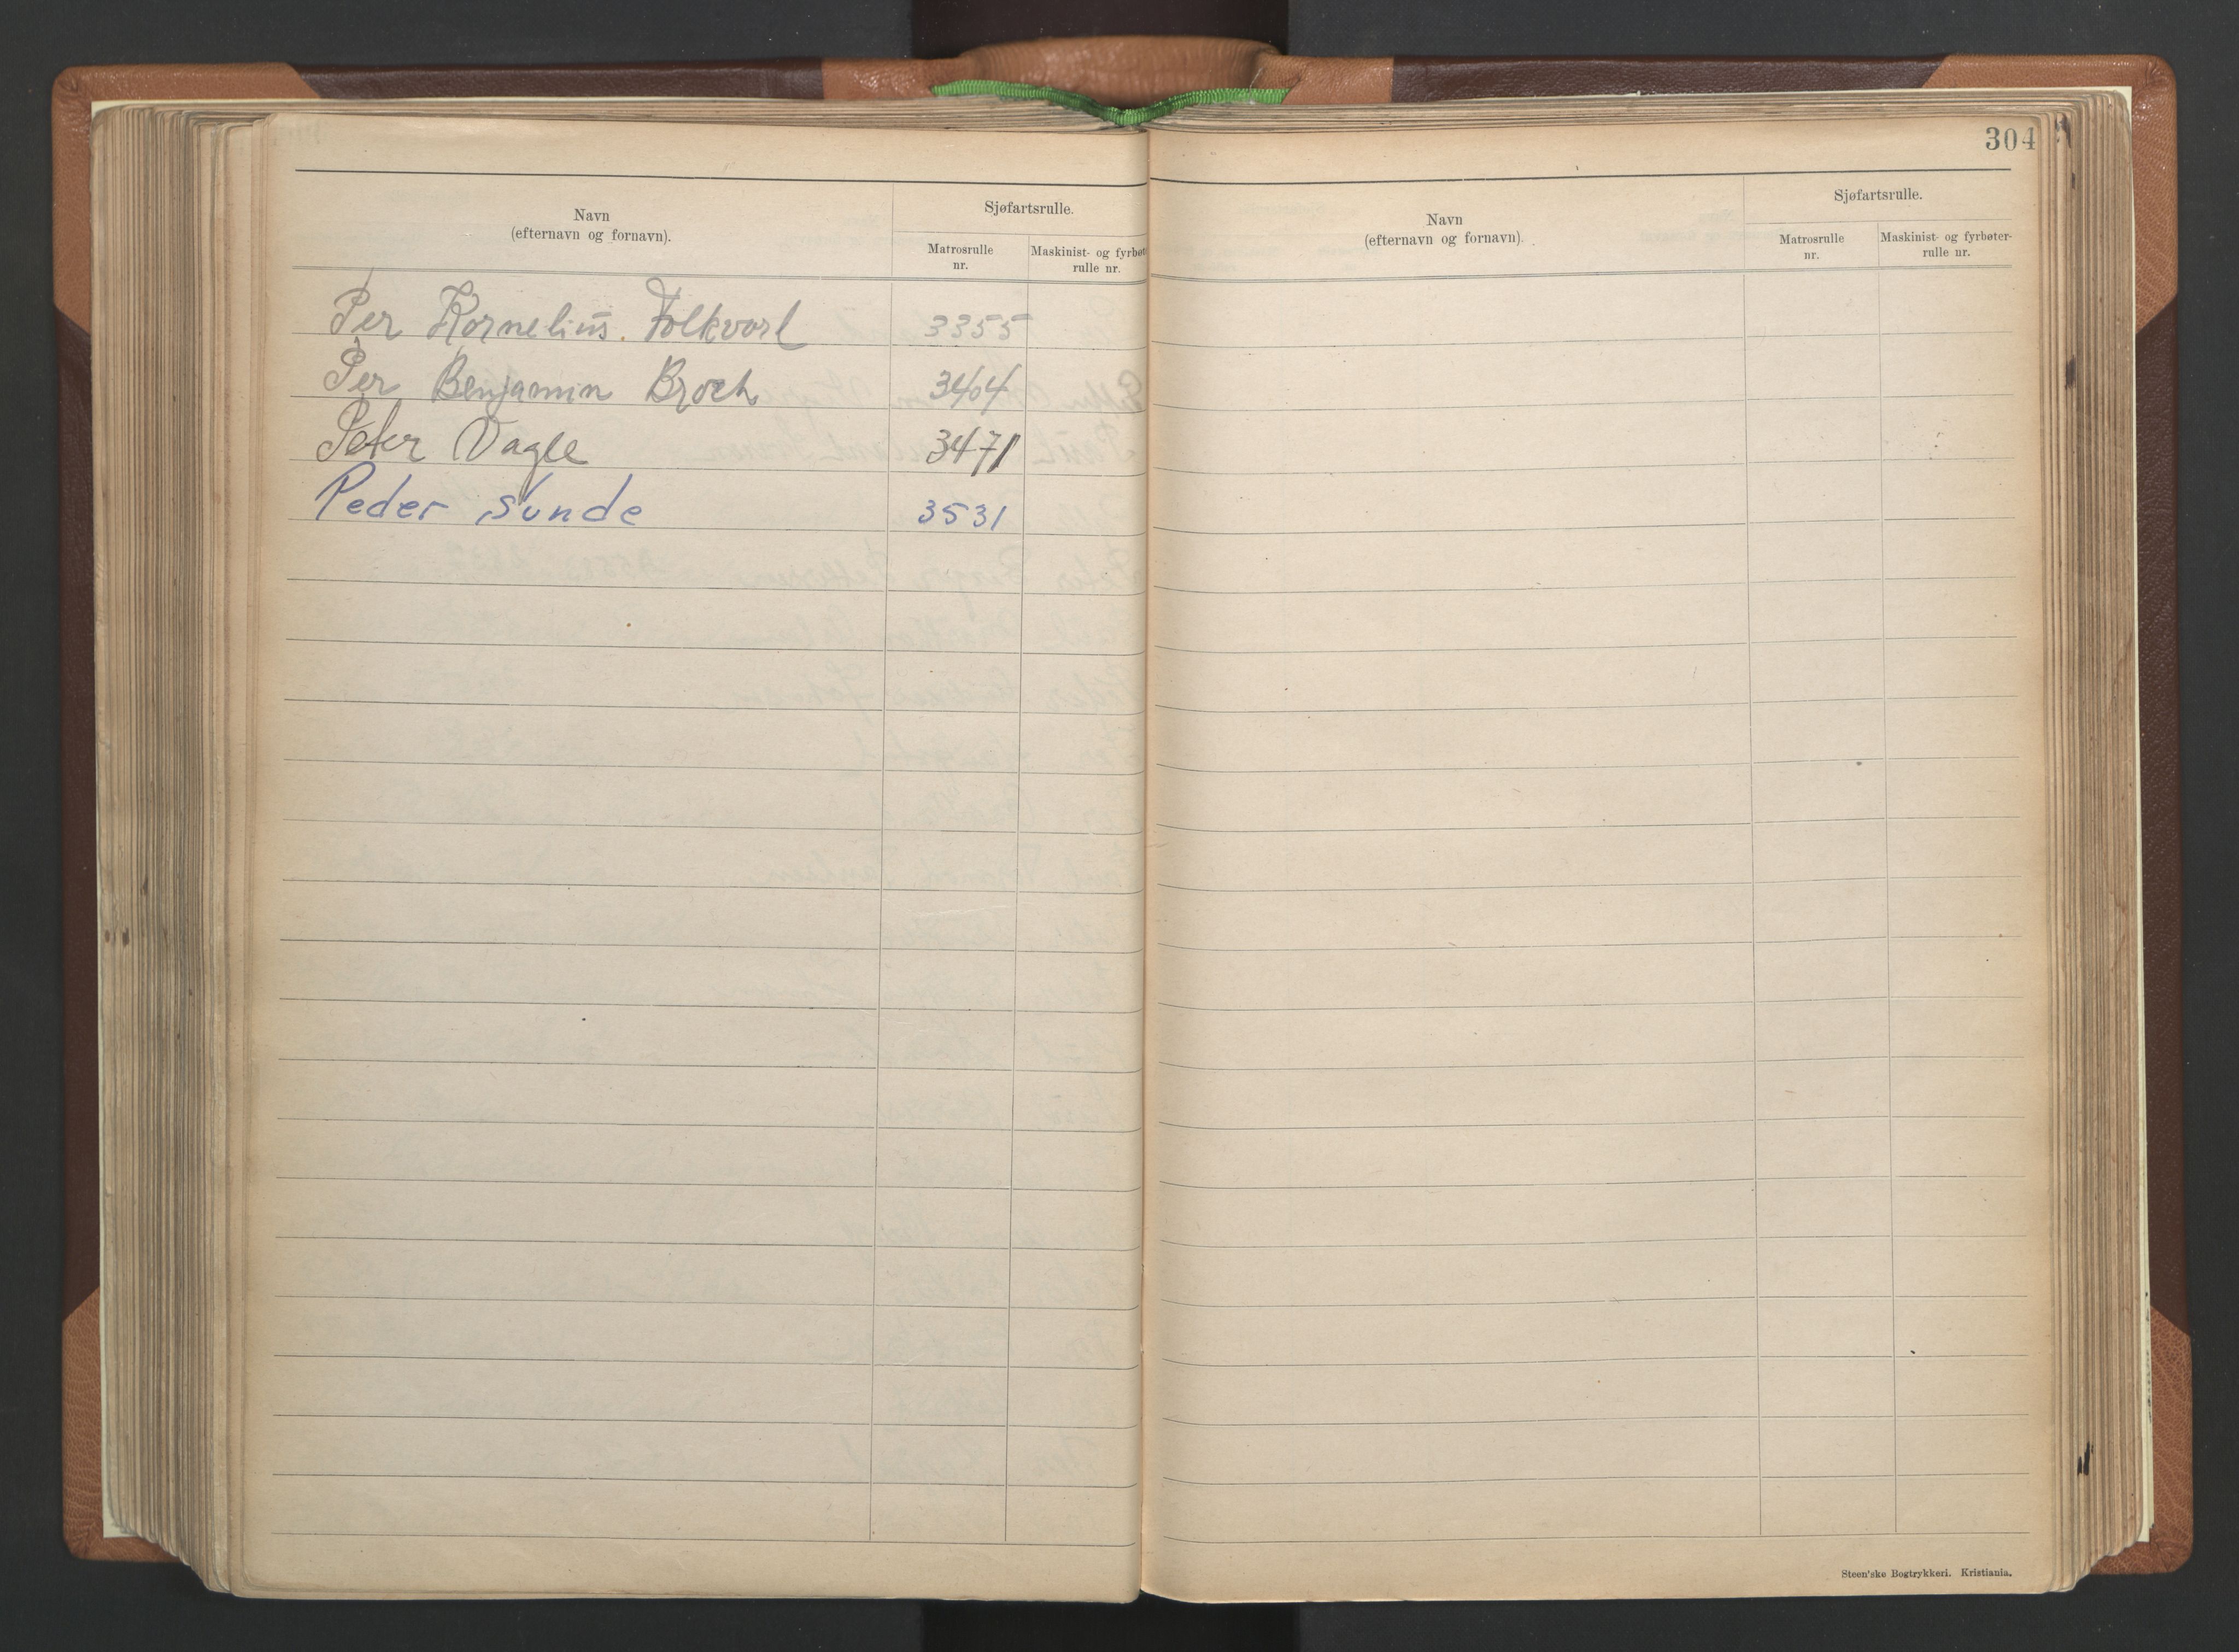 Navn
(efternavn og fornavn).
Sjøfartsrulle.
Matrosrulle
nr.
Maskinist- og fyrbøt
rulle nr.
Per Kornelius. Folkvorl 3355
Per Benjamin Broch 3404
Peter Vagle 3471
Peder Sunde 3531
304
Navn
(efternavn og fornavn).
Sjøfartsrulle.
Matrosrulle
nr.
Maskinist- og fyrbøter-
rulle nr.
Steen'ske Bogtrykkeri. Kristiania.